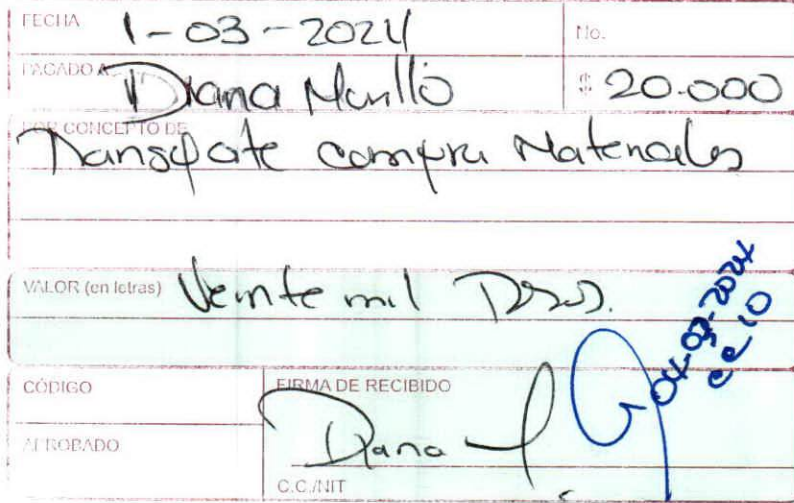 FECHA 1-03-2024 No.
PAGADO A Diana Murillo $ 20.000
POR CONCEPTO DE
Transporte compra Materiales
VALOR (en letras) Veinte mil Pesos.
04-03-2024
CÓDIGO FIRMA DE RECIBIDO
Diana M.
APROBADO
C.C./NIT